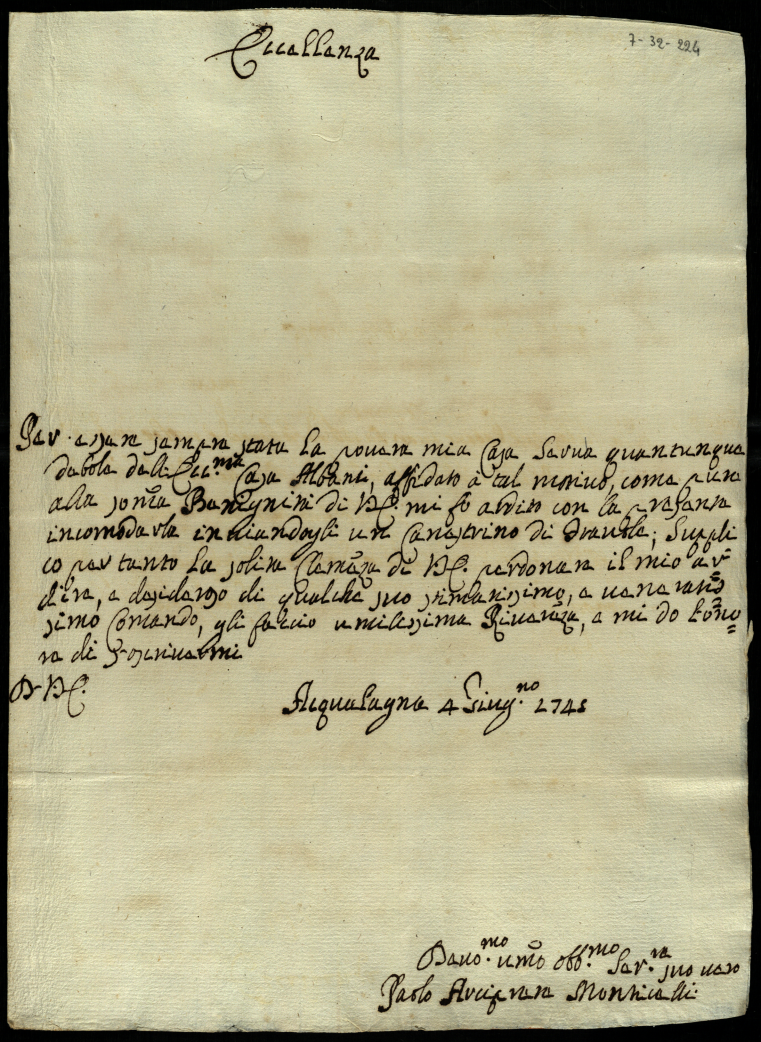 Eccellenza
7-32-224
Per essere sempre stata la povera mia Casa serva quantunque
debole dell'Ecc.ma Casa Albani, affidato à tal motivo, come pure
alla somã Benignità di V.E. mi fò ardito con la presente
incomodarla inviandogli un Canestrino di Fravole; suppli
co per tanto la solita Clemẽza di V.E. perdonare il mio ar
dire, e desideroso di qualche suo stimatissimo, e veneratis
simo Comando, gli faccio umilissima Riverẽza, e mi dò l'ono
re di sottoscrivermi
Di V.E.
Acqualagna 4 Giug.no 1741
Devo.mo umõ obb.mo Ser.re suo vero
Paolo Arciprete Monticelli